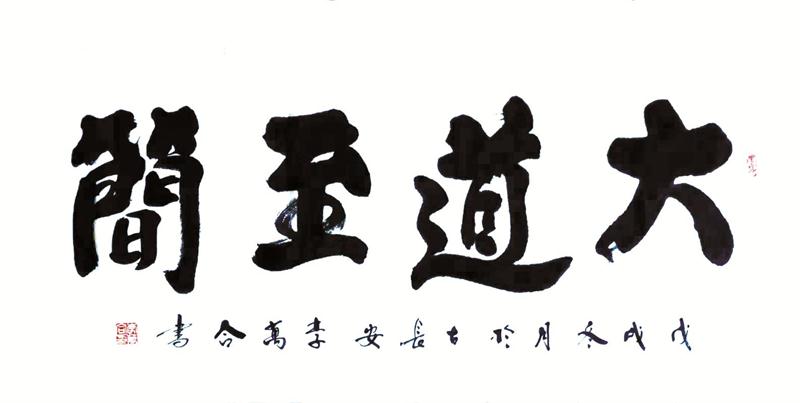 大道至簡
戊戌冬月於古長安李萬合書